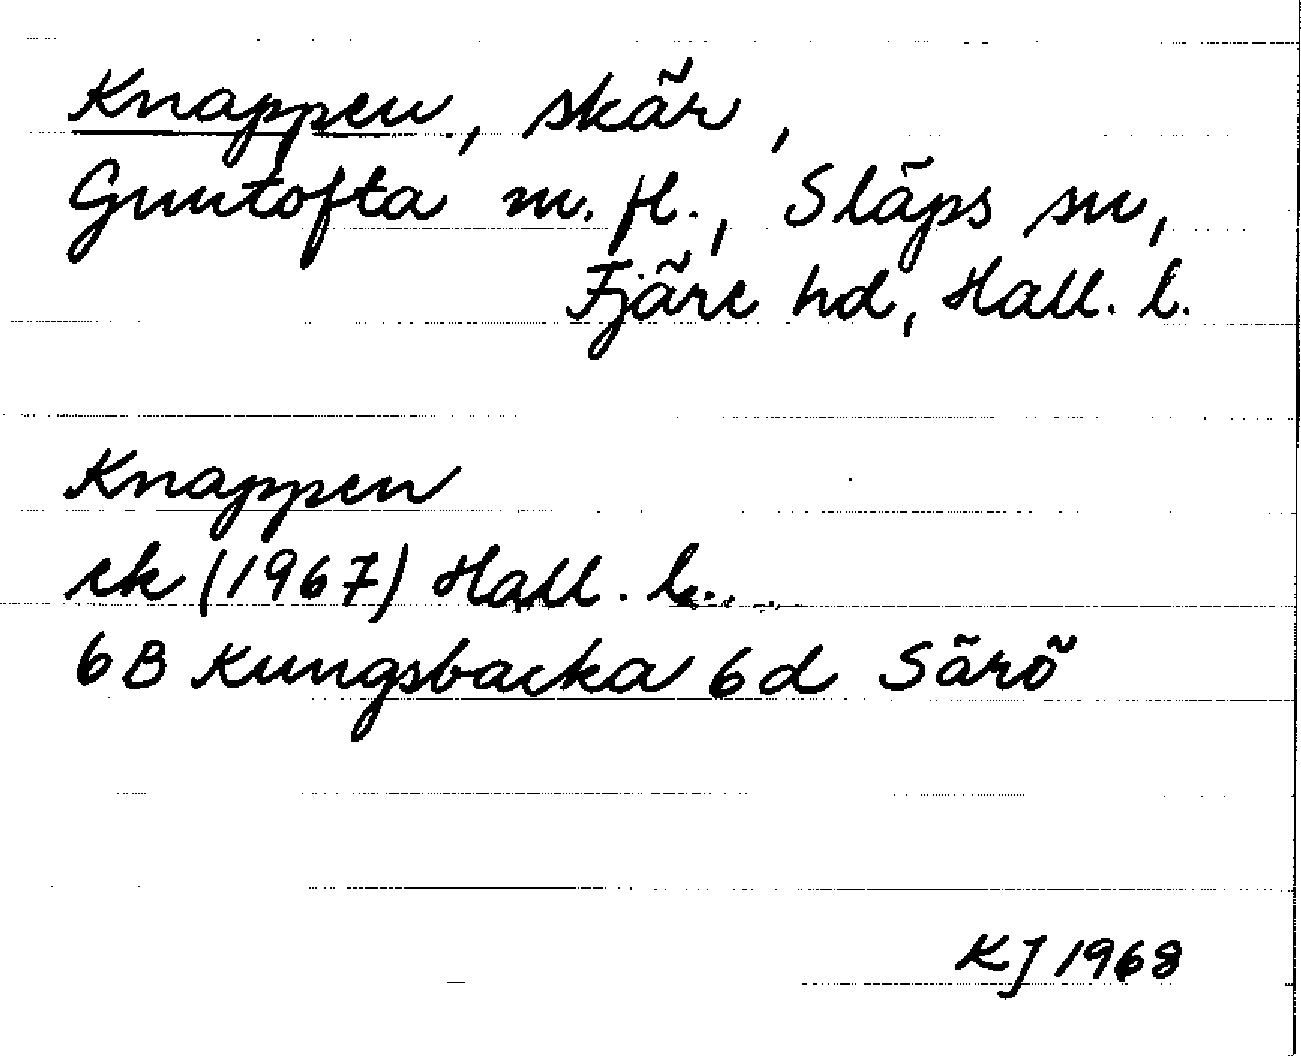 Knappen, skär,
Guntofta m. fl., Släps sn,
Fjäre hd, Hall. l.
Knappen
ek (1967) Hall. l.
6B Kungsbacka 6d Särö
KJ 1968